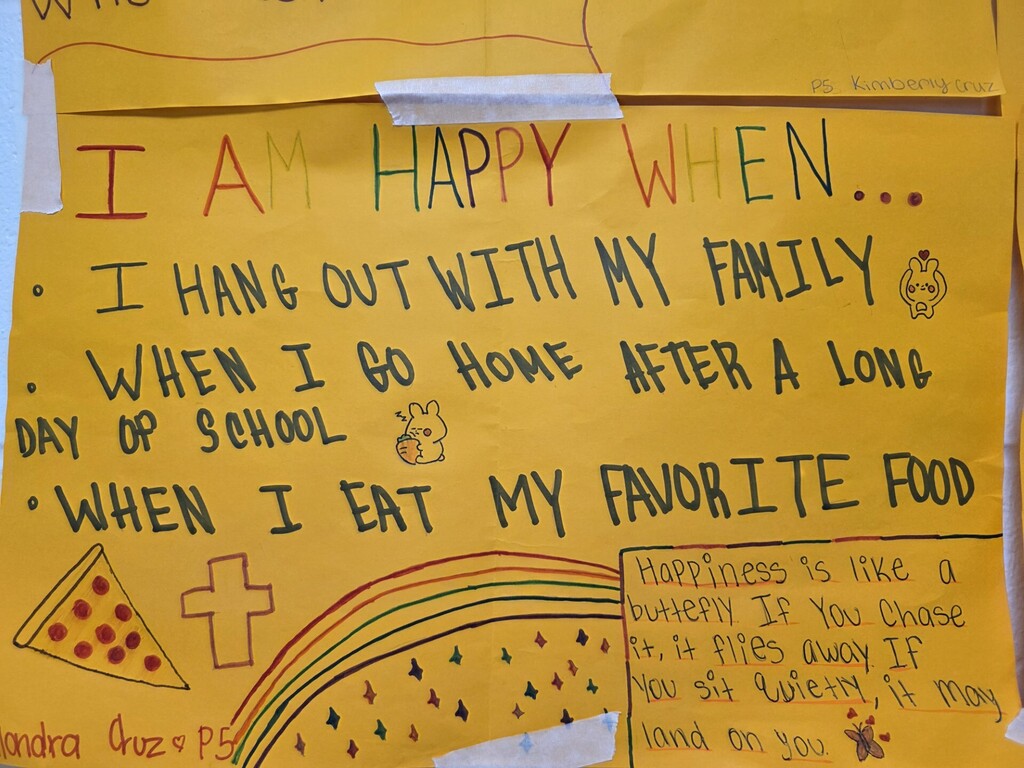 P5 Kimberly Cruz
I AM HAPPY WHEN...
• I HANG OUT WITH MY FAMILY
• WHEN I GO HOME AFTER A LONG
DAY OF SCHOOL
• WHEN I EAT MY FAVORITE FOOD
Happiness is like a
buttefly If You Chase
it, it flies away. If
You sit Quietly, it may
land on you.
Cruz ♡ P5